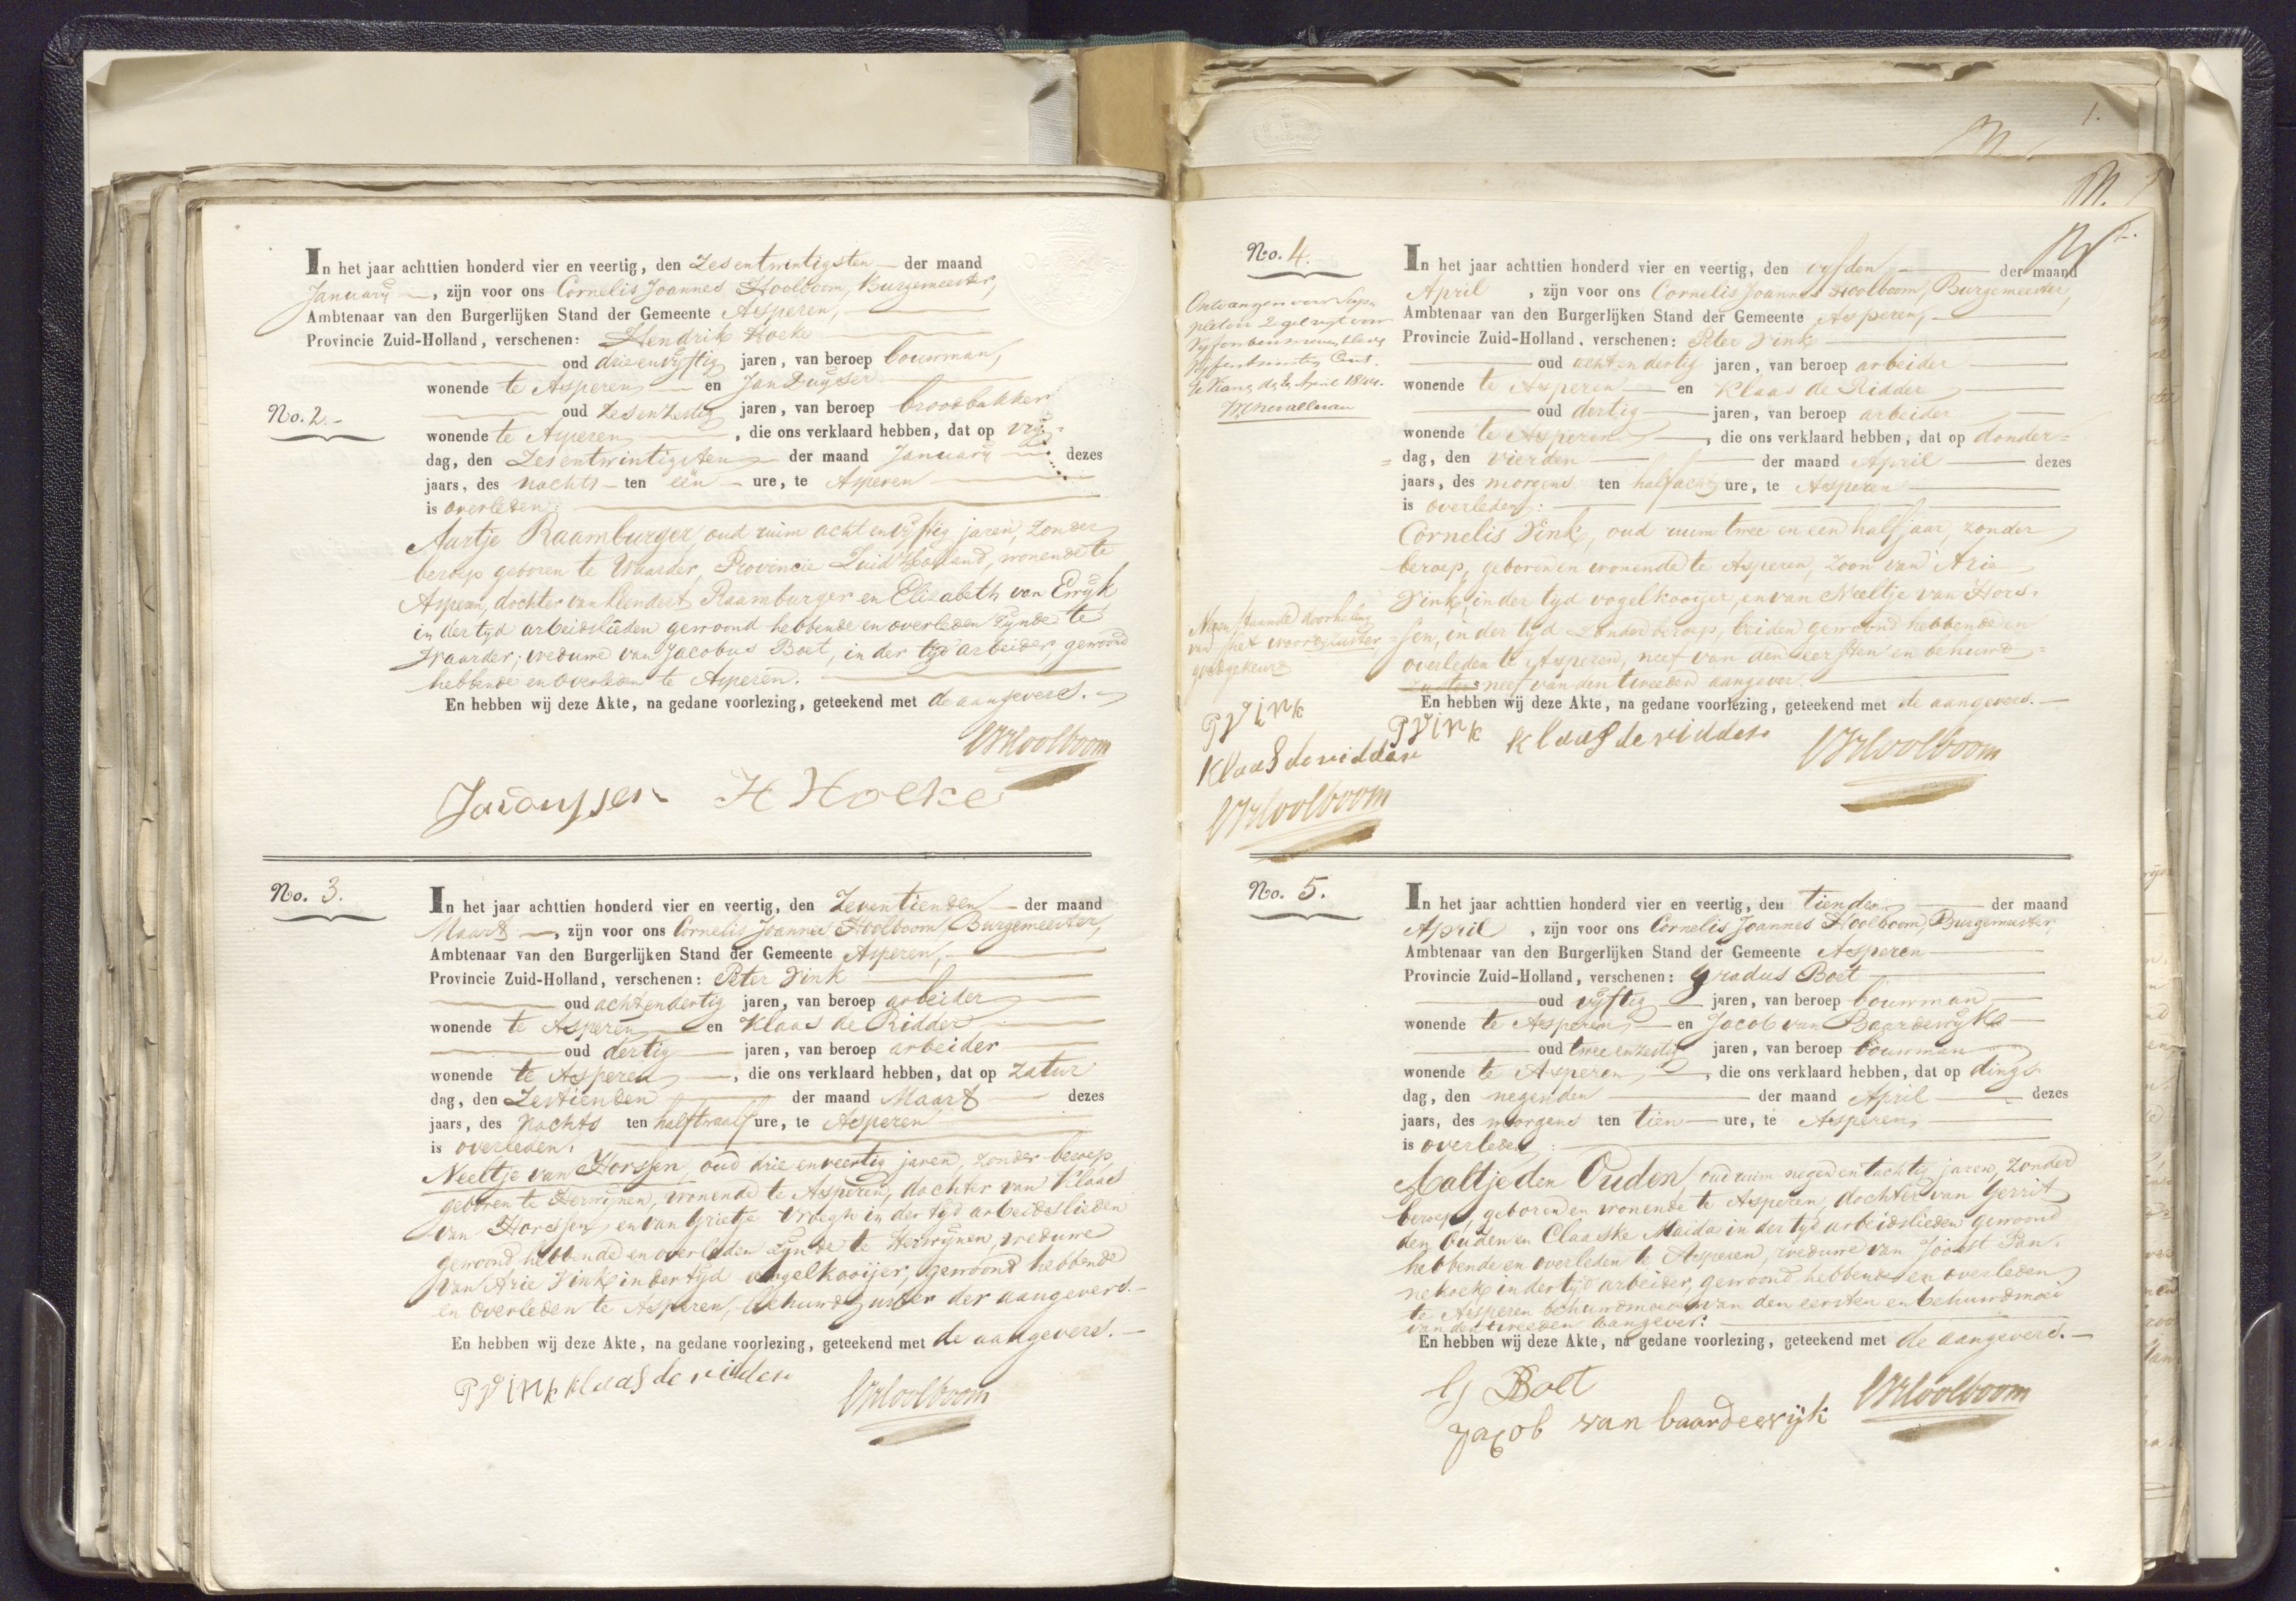 In het jaar achttien honderd vier en veertig, den Zesentwintigsten der maand
January, zijn voor ons Cornelis Joannes Hoolboom, Burgemeester,
Ambtenaar van den Burgerlijken Stand der Gemeente Asperen,
Provincie Zuid-Holland, verschenen: Hendrik Hoeke
oud drieenvyftig jaren, van beroep bouwman,
wonende te Asperen en Jan Duyser
No. 2.
oud Zesenzestig jaren, van beroep broodbakker
wonende te Asperen, die ons verklaard hebben, dat op vry=
dag, den Zesentwintigsten der maand January dezes
jaars, des nachts ten een ure, te Asperen
is overleden:
Aartje Raamburger, oud ruim achtenvyftig jaren, zonder
beroep geboren te Waarder, Provincie Zuid Holland, wonende te
Asperen, dochter van Leendert Raamburger en Elizabeth van Erryk
in der tyd arbeidslieden gewoond hebbende en overleden zynde te
Waarder; weduwe van Jacobus Boet, in der tyd arbeider, gewoond
hebbende en overleden te Asperen.
En hebben wij deze Akte, na gedane voorlezing, geteekend met de aangevers.
CJHoolboom
H Hoeke
No. 3.
In het jaar achttien honderd vier en veertig, den Zeventienden der maand
Maart, zijn voor ons Cornelis Joannes Hoolboom, Burgemeester,
Ambtenaar van den Burgerlijken Stand der Gemeente Asperen,
Provincie Zuid-Holland, verschenen: Peter Vink
oud achtendertig jaren, van beroep arbeider
wonende te Asperen en Klaas de Ridder
oud dertig jaren, van beroep arbeider
wonende te Asperen, die ons verklaard hebben, dat op Zatur
dag, den Zestienden der maand Maart dezes
jaars, des nachts ten halftwaalf ure, te Asperen
is overleden:
Neeltje van Horssen, oud drie enveertig jaren, zonder beroep
geboren te Herwynen, wonende te Asperen, dochter van Klaas
van Horssen, en van Grietje Vroegh in der tyd arbeidslieden
gewoond hebbende en overleden zynde te Herwynen, weduwe
van Arie Vink in der tyd vogelkooijer, gewoond hebbende
en overleden te Asperen, behuwdzuster der aangevers.
En hebben wij deze Akte, na gedane voorlezing, geteekend met de aangevers.
P Vink klaas de ridder
CJHoolboom
1.
No. 4.
In het jaar achttien honderd vier en veertig, den vyfden der maand
April, zijn voor ons Cornelis Joannes Hoolboom, Burgemeester,
Ambtenaar van den Burgerlijken Stand der Gemeente Asperen,
Provincie Zuid-Holland, verschenen: Peter Vink
oud achtendertig jaren, van beroep arbeider
wonende te Asperen en Klaas de Ridder
oud dertig jaren, van beroep arbeider
wonende te Asperen, die ons verklaard hebben, dat op donder=
=dag, den vierden der maand April dezes
jaars, des morgens ten halfacht ure, te Asperen
is overleden:
Cornelis Vink, oud ruim twee en een half jaar, zonder
beroep, geboren en wonende te Asperen, zoon van Arie
Vink, in der tyd vogelkooijer, en van Neeltje van Hors=
=sen, in der tyd zonder beroep, beiden gewoond hebbende en
overleden te Asperen, neef van den eersten en behuwd=
neef van den tweeden aangever.
En hebben wij deze Akte, na gedane voorlezing, geteekend met de aangevers.
Ontvangen voor
2 voor
Cent.
April 1844.
doorhaling
van het woord zuster
goedgekeurd
P Vink
Klaas de ridder
CJHoolboom
P Vink klaas de ridder
CJHoolboom
No. 5.
In het jaar achttien honderd vier en veertig, den tienden der maand
April, zijn voor ons Cornelis Joannes Hoolboom, Burgemeester,
Ambtenaar van den Burgerlijken Stand der Gemeente Asperen
Provincie Zuid-Holland, verschenen: Gradus Boet
oud vyftig jaren, van beroep bouwman
wonende te Asperen, en Jacob van Baardewyk
oud tweeenzestig jaren, van beroep bouwman
wonende te Asperen, die ons verklaard hebben, dat op dings
dag, den negenden der maand April dezes
jaars, des morgens ten tien ure, te Asperen,
is overleden:
Aaltje den Ouden, oud ruim negen en tachtig jaren, zonder
beroep, geboren en wonende te Asperen, dochter van Gerrit
den Ouden en Claaske Maida in der tyd arbeidslieden gewoond
hebbende en overleden te Asperen, weduwe van Joost Pan=
nekoek in der tyd arbeider, gewoond hebbende en overleden
te Asperen behuwdmoeder van den eersten en behuwdmoei
van den tweeden aangever:
En hebben wij deze Akte, na gedane voorlezing, geteekend met de aangevers.
G Boet
CJHoolboom
Jacob van baardewijk